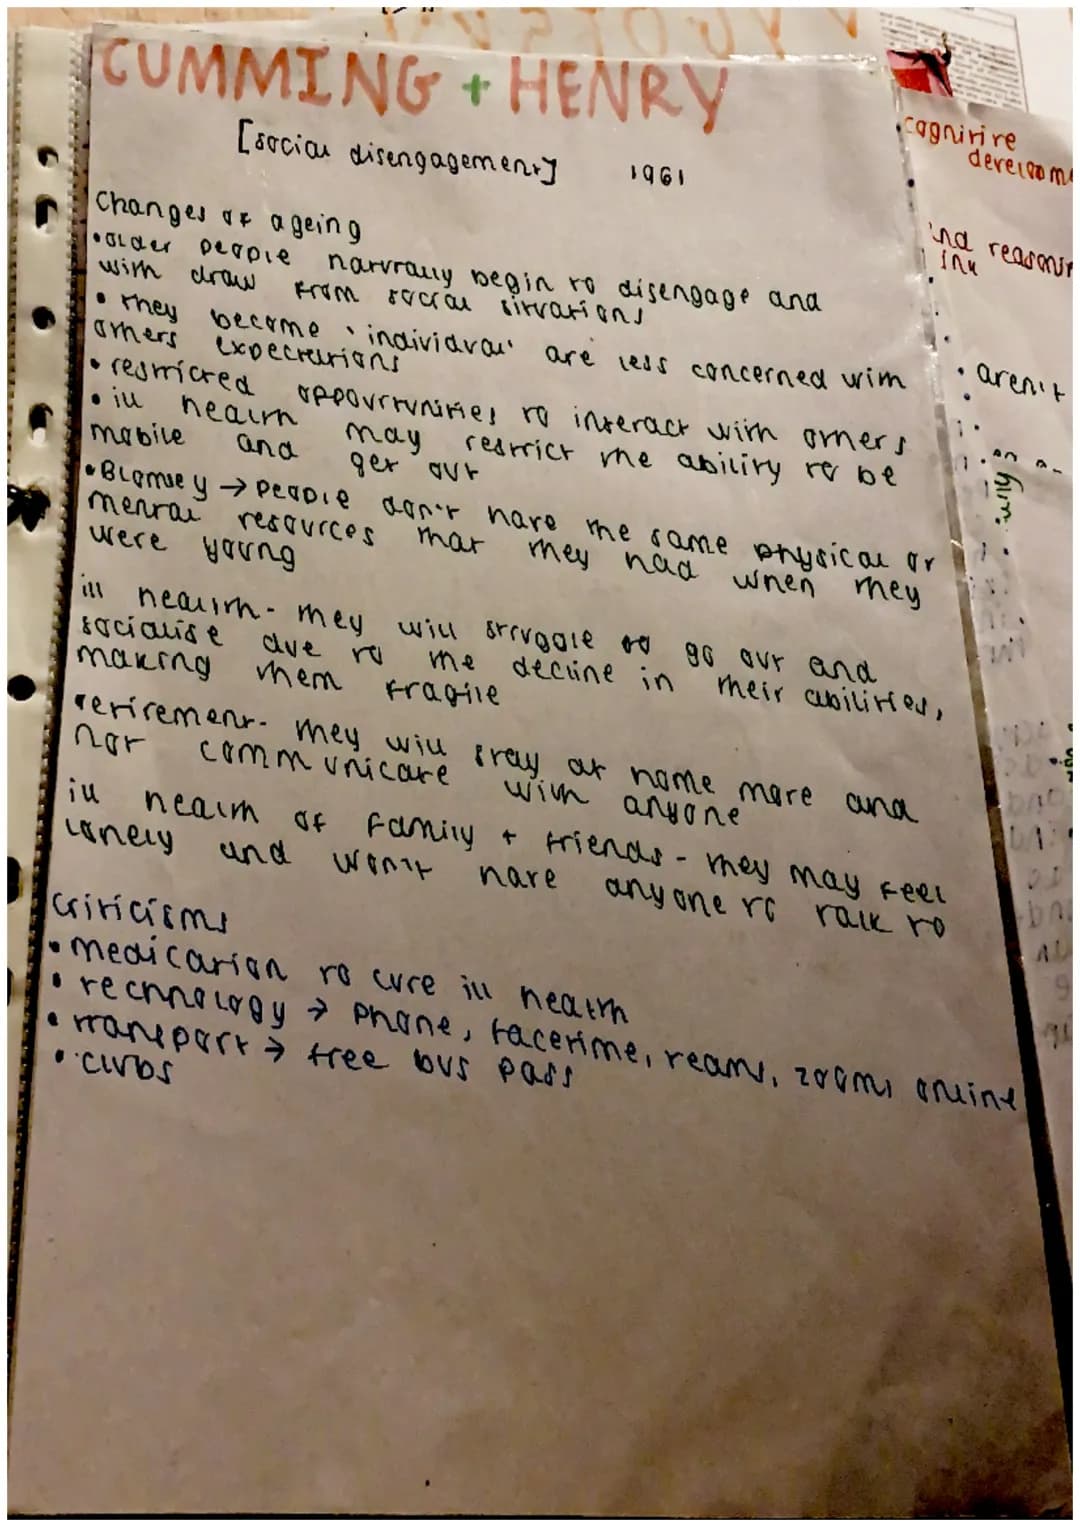 CUMMING + HENRY
[social disengagement] 1961
Changes of ageing
• older people naturally begin to disengage and
with draw from social situations
• they become 'individual' are less concerned with
others expectations
• restricted oppourtunities to interact with others
• ill health may restrict the ability to be
mobile and get out
• Blomley → people don't have the same physical or
mental resources that they had when they
were young
ill health - they will struggle to go out and
socialise due to the decline in their abilities,
making them fragile
retirement - they will stay at home more and
not communicate with anyone
ill health of family + friends - they may feel
lonely and won't have anyone to talk to
Criticisms
• medication to cure ill health
• technology → phone, facetime, teams, zooms online
• transport → free bus pass
• clubs
cognitive
developme
and reasonin
ink
• aren't